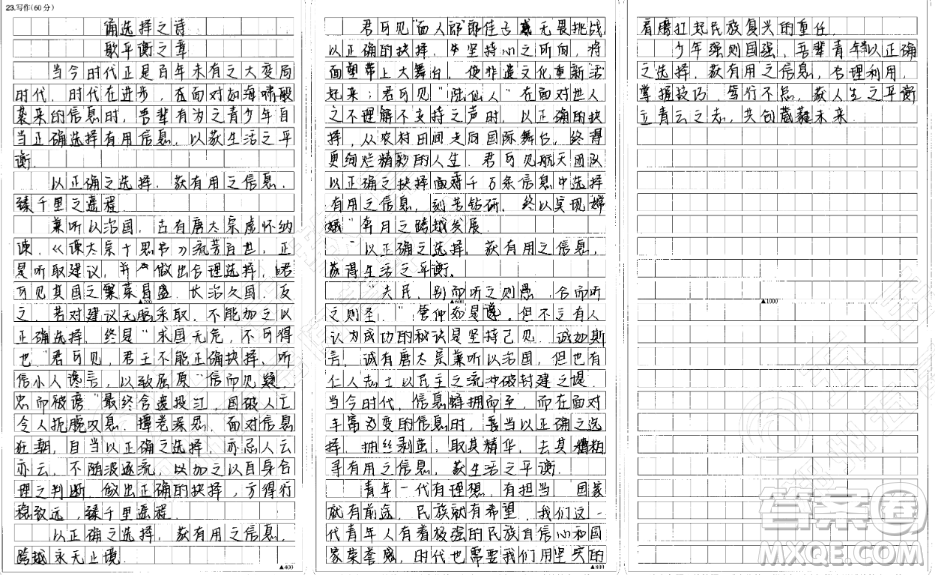 23.写作(60分)
诵选择之诗
歌平衡之章
当今时代正是百年未有之大变局
时代，时代在进步，在面对如海啸般
袭来的信息时，吾辈有为之青少年自
当正确选择有用信息，以获生活之平
衡。
以正确之选择，获有用之信息，
臻千里之遥程
兼听以治国，古有唐太宗虚怀纳
谏，《谏太宗十思书》流芳百世，正
是听取建议，并做出合理选择，君
可见其国之繁荣昌盛，长治久国，反
之，若对建议无脑采取，不能加之以
正确选择，终是"求国无危，不可得
也"君可见，君王不能正确抉择，听
信小人谗言，以致屈原"信而见疑，
忠而被谤"最终含志投江，国破人亡
令人扼腕叹息，掸卷凝思，面对信息
在朝，自当以正确之选择，亦忌人云
亦云，不随波逐流，以加之以自身合
理之判断，做出正确的抉择，方得行
稳致远，臻千里遥程
以正确之选择，获有用之信息，
跨越永无止境
▲400
君可见"面人郎"郎佳子彧无畏挑战
以正确的抉择，坚持心之所向，将
面塑带上大舞台，使非遗文化重新活
起来；君可见"陆仙人"在面对世人
之不理解不支持之声时，以正确的抉
择，从农村田间走向国际舞台，终得
更绚烂精彩的人生，君可见航天团队
以正确之抉择面对千万条信息中选择
有用之信息，刻苦钻研，终以实现"嫦
娥"奔月之跨越发展。
以正确之选择，获有用之信息，
获得生活之平衡。
"夫民，别而听之则愚，合而听
之则圣，"管仲如是道，但不乏有人
认为成功的秘诀是坚持己见，诚如斯
言，诚有唐太宗兼听以治国，但也有
仁人志士以民主之流冲破封建之堤，
当今时代，信息蜂拥而至，而在面对
丰富多变的信息时，善当以正确之选
择，抽丝剥茧，取其精华，去其糟粕
寻有用之信息，获生活之平衡。
青年一代有理想，有担当，国家
就有前途，民族就有希望，我们这一
代青年人有着极强的民族自信心和国
家荣誉感，时代也需要我们用坚实的
▲800
肩膀扛起民族复兴的重任。
少年强则国强，吾辈青年以正确
之选择，获有用之信息，合理利用，
掌握技巧，笃行不怠，获人生之平衡
立青云之志，共创葳蕤未来
▲1000
答案圈
MXQE.COM